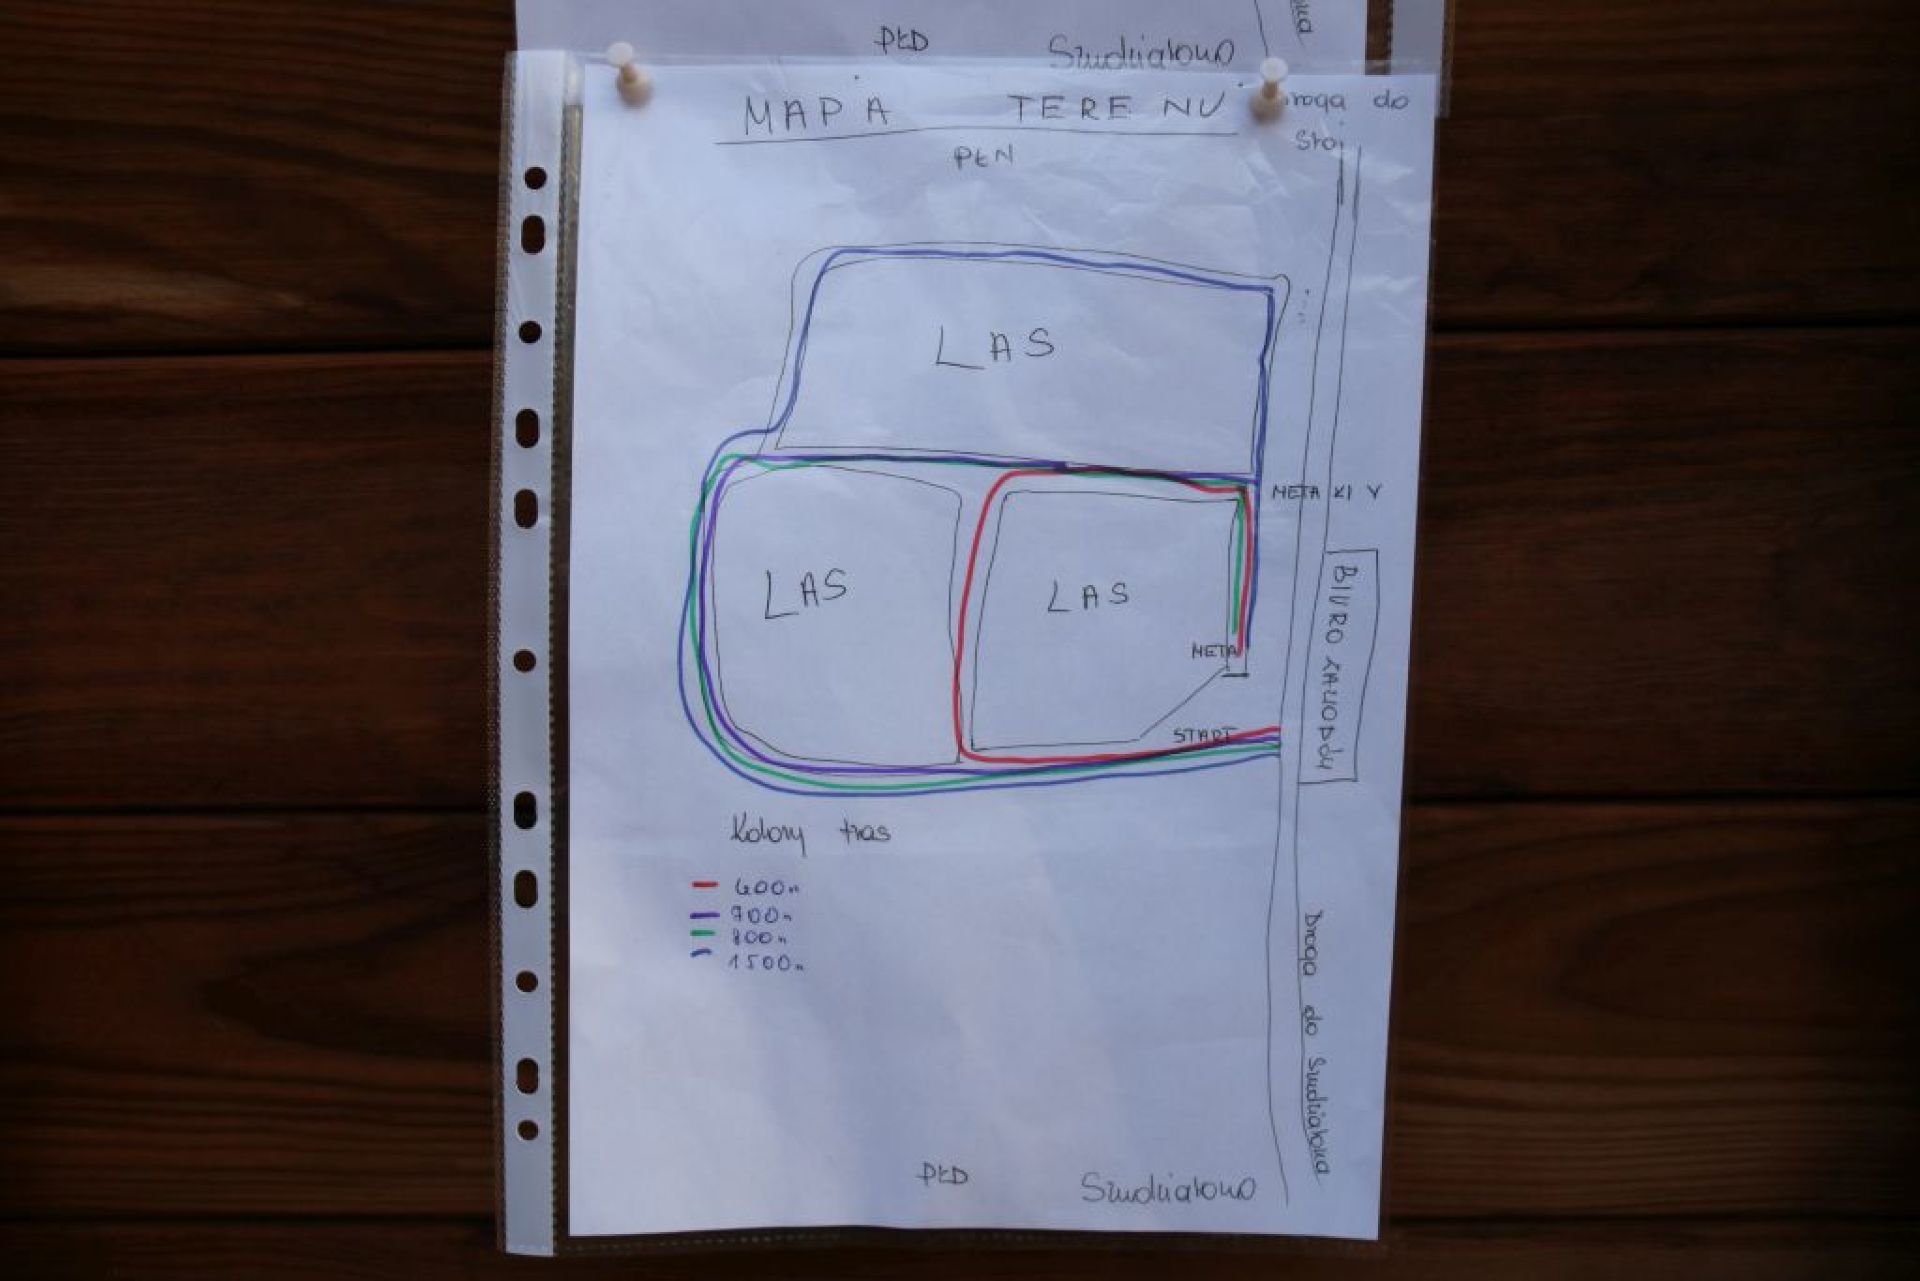 PŁD Szudziałowo
MAPA TERENU
Droga do
PŁN
LAS
META KI V
LAS
LAS
META
START
BIURO ZAWODÓW
Kolory tras
600m
900m
800m
1500m
Droga do Szudziałowa
PŁD Szudziałowo